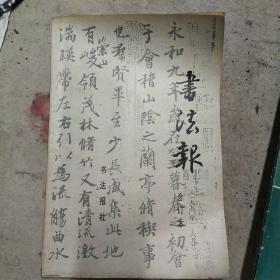 書法報
永和九年歲在癸丑暮春之初會
于會稽山陰之蘭亭脩稧事
也羣賢畢至少長咸集此地
有崇山峻領茂林脩竹又有清流激
湍暎帶左右引以為流觴曲水
书法报社